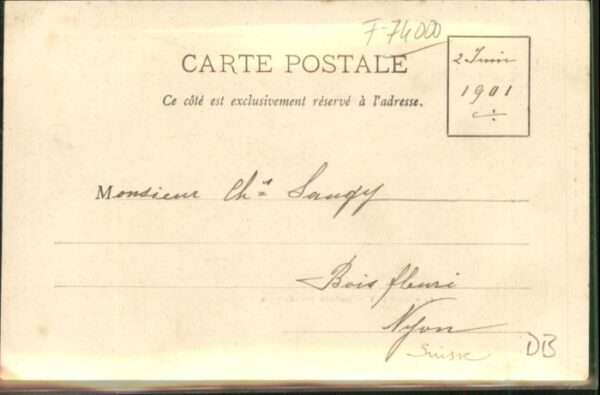 F-74000
CARTE POSTALE
2 Juin
1901
Ce côté est exclusivement réservé à l'adresse.
Monsieur Chs Saugy
Bois fleuri
Nyon
Suisse
DB